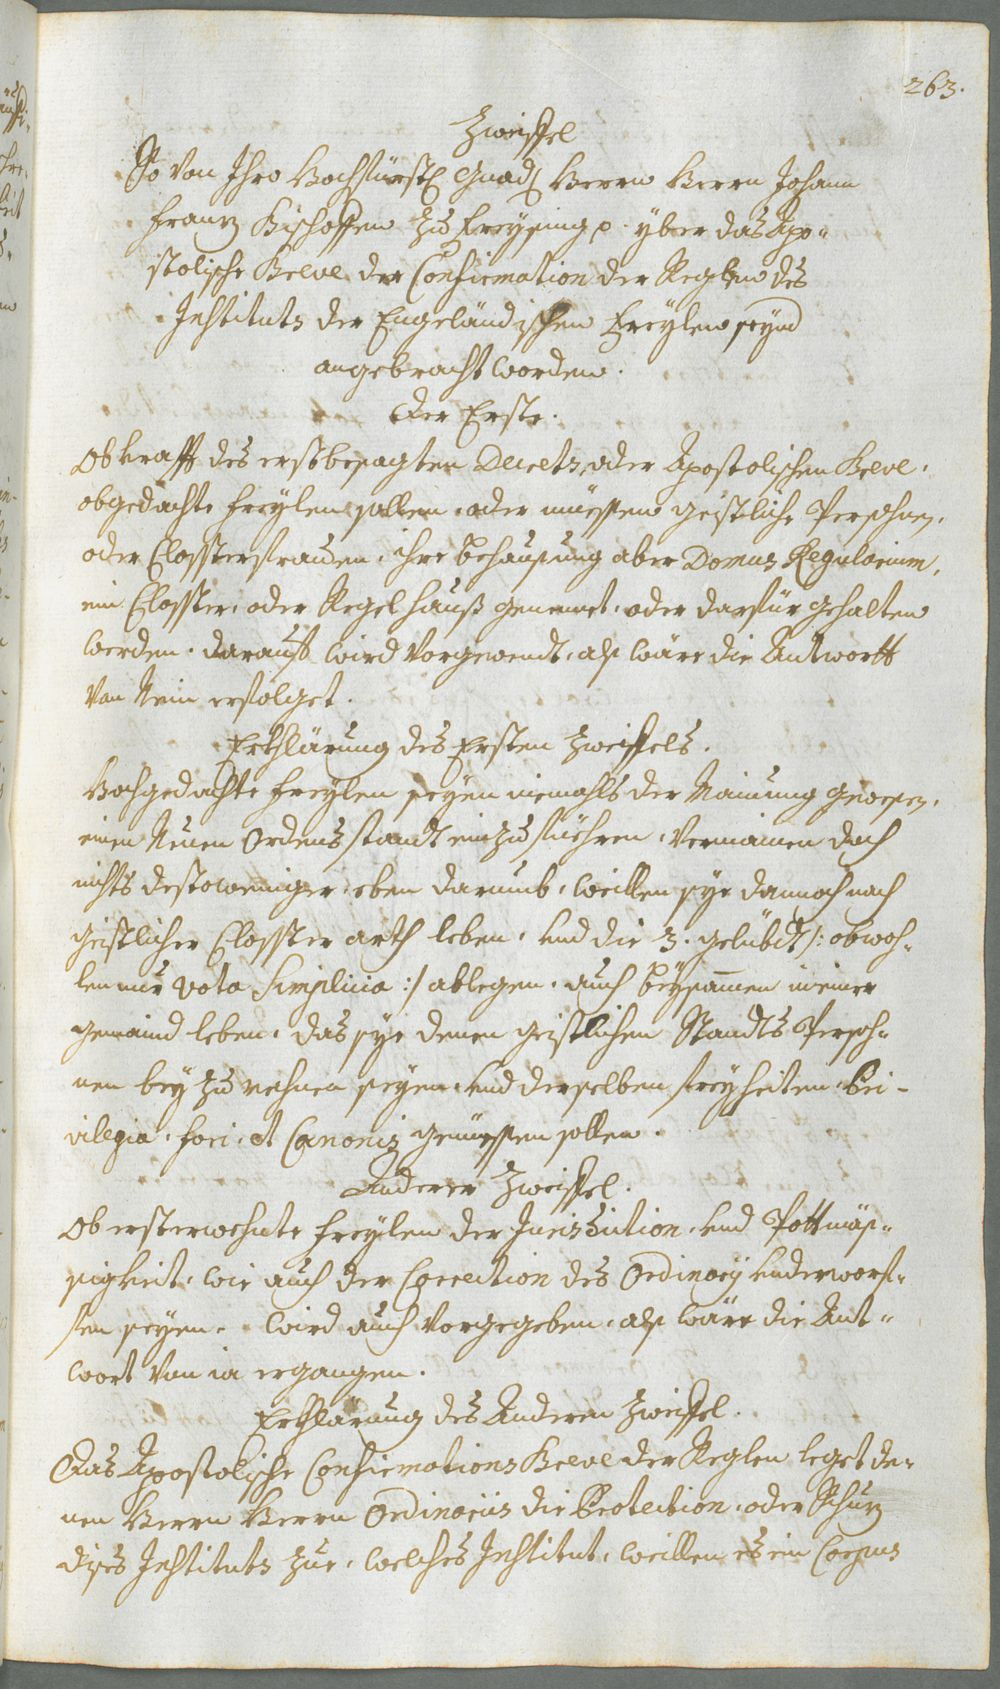 263.
Zweiffel
So von Ihro Hochfürstl. Gnad. Herrn Herrn Johann
Frantz Bischoffen zu Freysing p. yber das Apo-
stolische Breve der Confirmation der Reglen des
Instituts der Engeländischen Freylen seynd
angebracht worden.
Der Erste.
Ob krafft des erstbesagten Decrets, oder Apostolischen Breve,
obgedachte Freylen sollen, oder müessen geistliche Persohnen,
oder Closterfrauen, ihre behausung aber Domus Regularium,
ein Closter, oder Regelhauß genennet, oder darfür gehalten
werden. darauf wird vorgewendt, als wäre die Antwortt
von Nein erfolget.
Erkhlärung des Ersten Zweiffels.
Hochgedachte Freylen seyen niemahls der Mainung gewesen,
einen Neuen Ordensstandt einzufüehren, vermainen doch
nichts destoweniger, eben darumb, weillen sye dannoch nach
geistlicher Closter arth leben, und die 3. gelübdt /: obwoh-
len nur vota Simplicia :/ ablegen, auch beysammen in einer
gemaind leben, das sye denen geistlichen Standts Persoh-
nen bey zu nehmen seyen, und derselben freyheiten, Pri-
vilegia, fori, et Canonis geniessen sollen.
Anderer Zweiffel.
Ob ersterwehnte Freylen der Jurisdiction, und Pottmäs-
sigkeit, wie auch der Correction des Ordinarij underworf-
fen seyen. wird auch vorgegeben, als wäre die Ant-
wort von ia ergangen.
Erkhlärung des Anderen Zweiffel.
Das Apostolische Confirmations Breve der Reglen leget de-
nen Herrn Herrn Ordinariis die Protection, oder Schutz
dises Instituts zue, welches Institut, weillen es ein Corpus